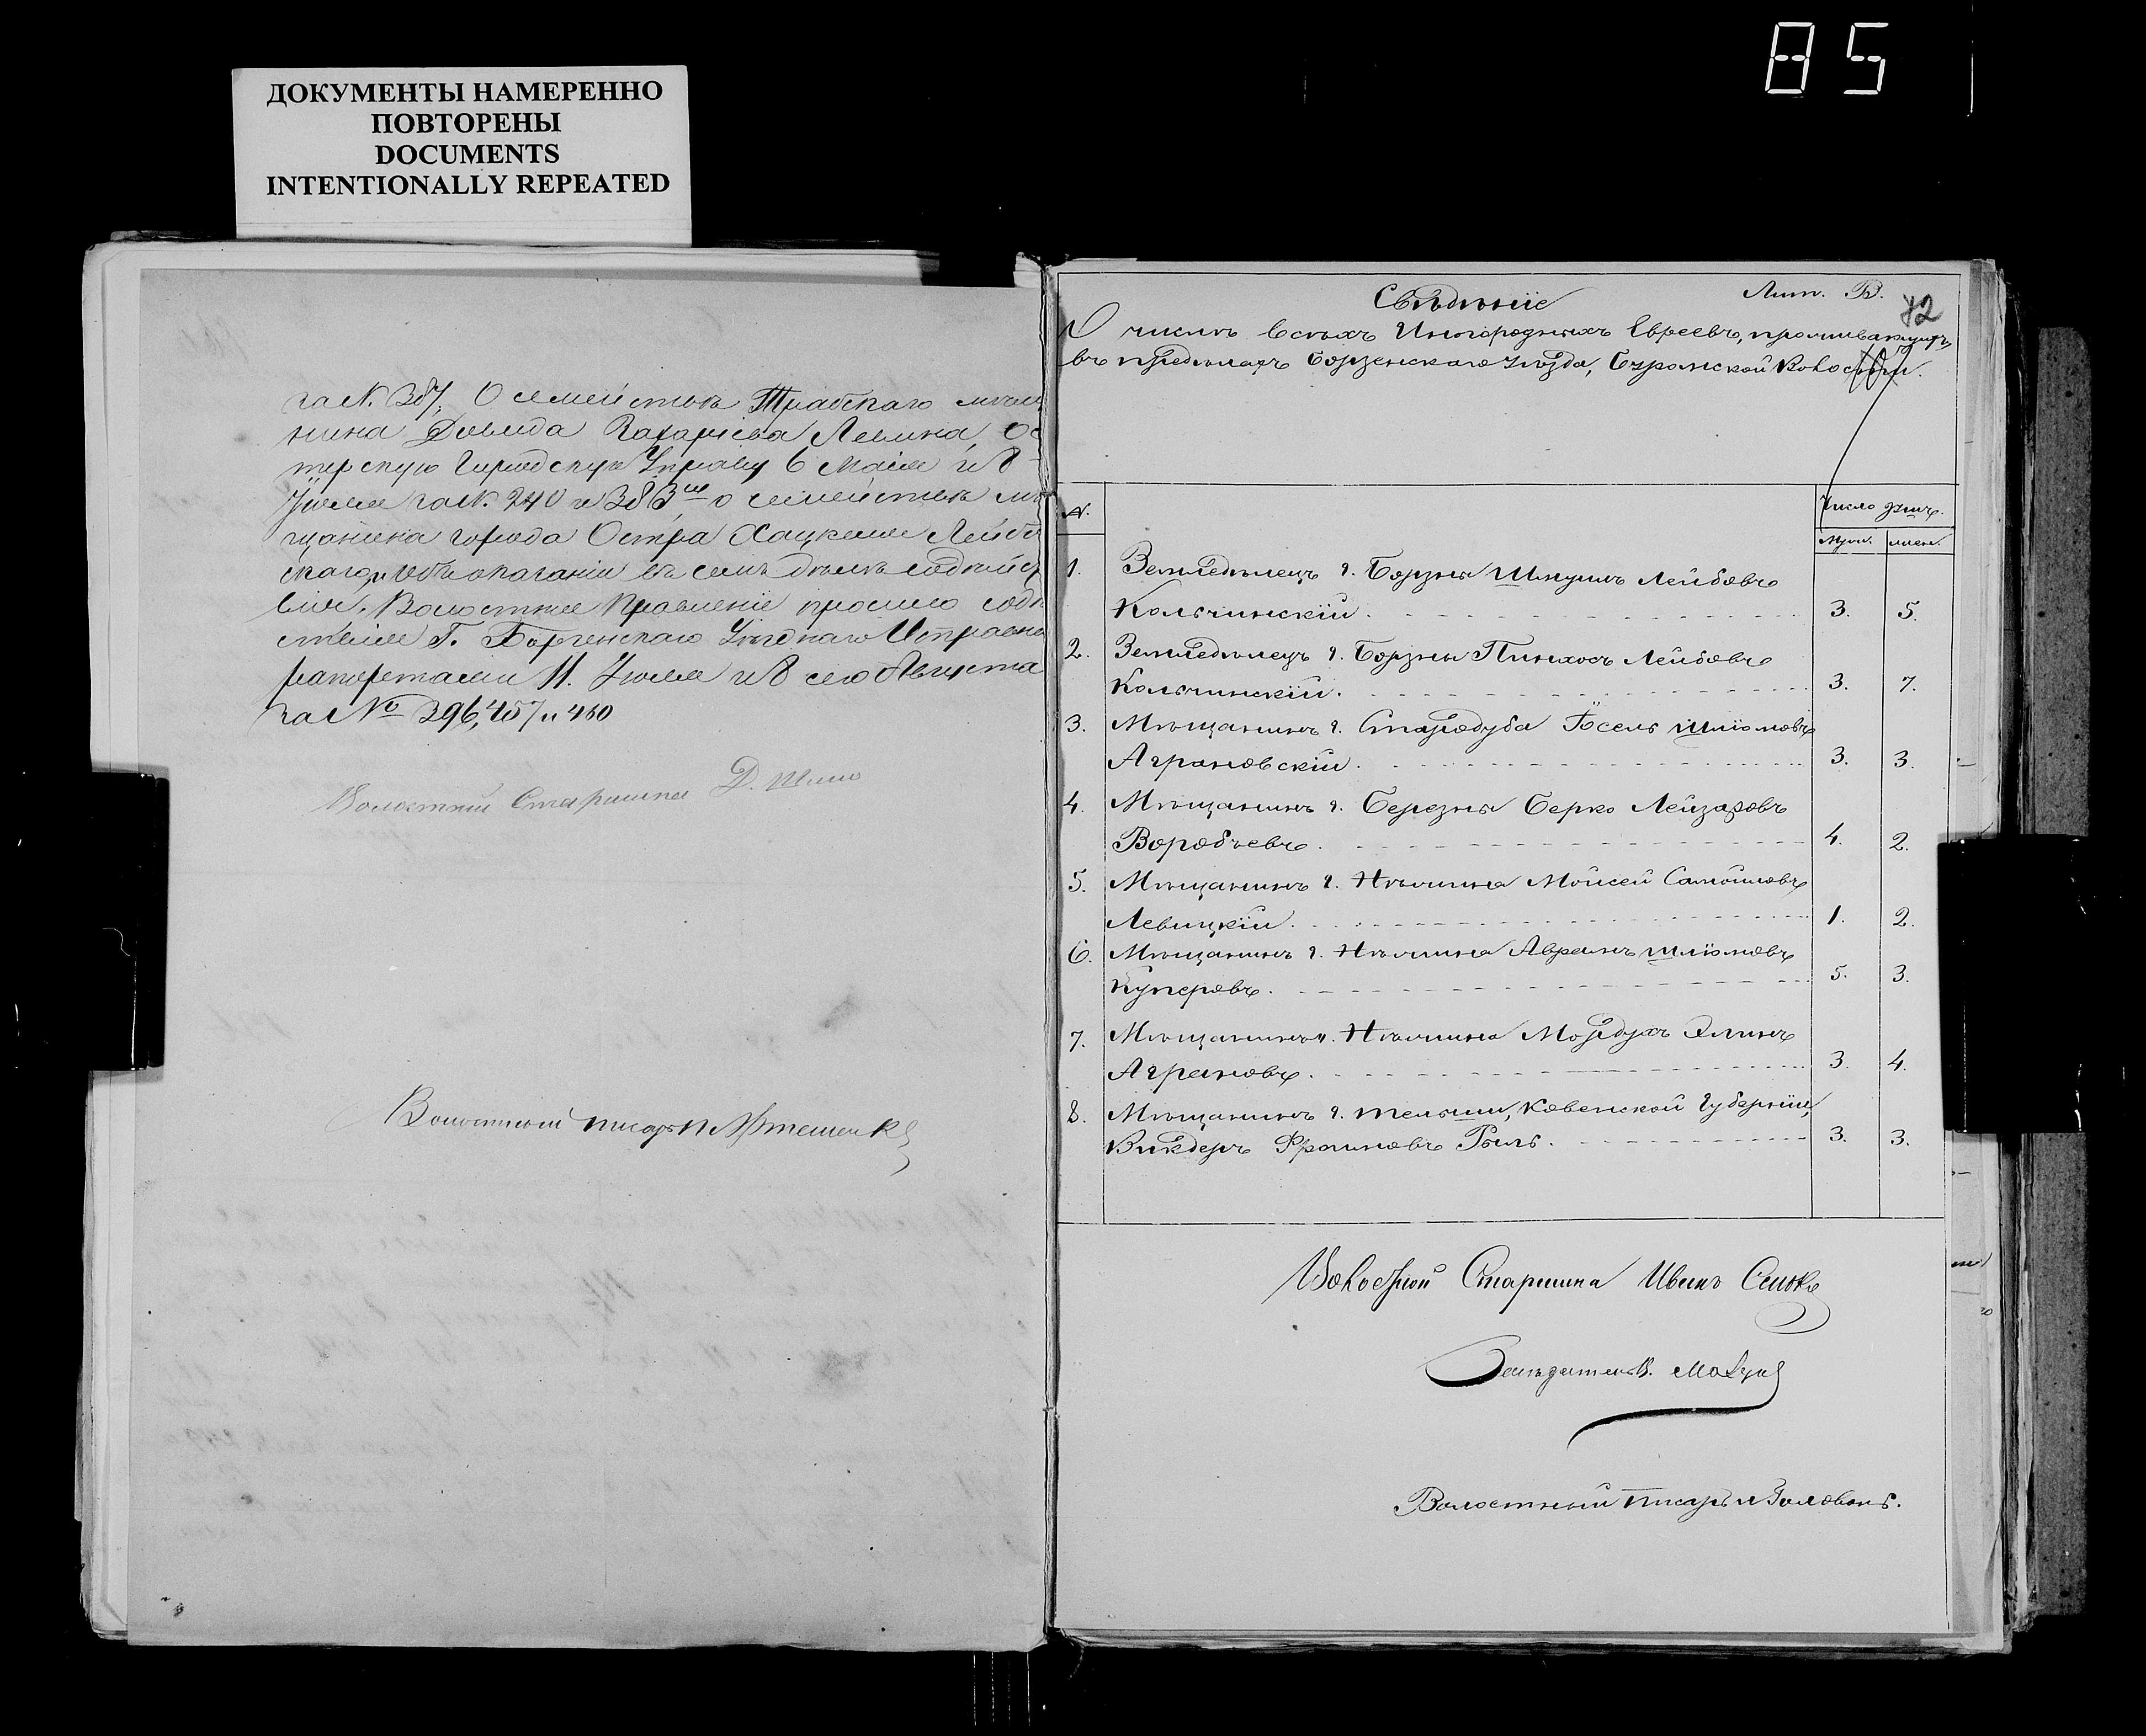 85
ДОКУМЕНТЫ НАМЕРЕННО
ПОВТОРЕНЫ
DOCUMENTS
INTENTIONALLY REPEATED
за №. 387, О семействѣ Трабскаго мѣща
нина Давида Захаріева Левина, Ос
терскую Городскую Управу 6 Мая и 8
Іюля за №. 240 и 383, о семействѣ мѣ
щанина города Остра Хацкеля Лейбов
скаго, и объ оказаніи въ семъ дѣлѣ содѣйст
вія. Волостное Правленіе просило
Г. Борзенскаго Уѣзднаго Исправни
рапортами 11. Іюля и 8 сего Августа
за № 396, 457 и 460
Волостной Старшина Д.
Волостной писарь
Свѣдѣніе
Лит. В.
42
О числѣ всѣхъ Иногородныхъ Евреевъ, проживающихъ
въ предѣлахъ Борзенскаго уѣзда, Буромской Волости.
№.
Число душъ.
Муж.
жен.
1. Земледѣлецъ г. Борзны Шмуилъ Лейбовъ
Кольчинскій. 3. 5.
2. Земледѣлецъ г. Борзны Пинхосъ Лейбовъ
Кольчинскій. 3. 7.
3. Мѣщанинъ г. Стародуба Іосель Шліомовъ
Аграновскій. 3. 3.
4. Мѣщанинъ г. Березны Берко Лейзаровъ
Воробьевъ. 4. 2.
5. Мѣщанинъ г. Нѣжина Мойсей Самойловъ
Левицкій. 1. 2.
6. Мѣщанинъ г. Нѣжина Авраамъ Шліомовъ
Куперовъ. 5. 3.
7. Мѣщанинъ г. Нѣжина Мордухъ Элинъ
Аграновъ. 3. 4.
8. Мѣщанинъ г. Тельши, Ковенской Губерніи,
Фроимовъ 3. 3.
Волосной Старшина Иванъ
Засѣдатель
Волостный писарь Головань.